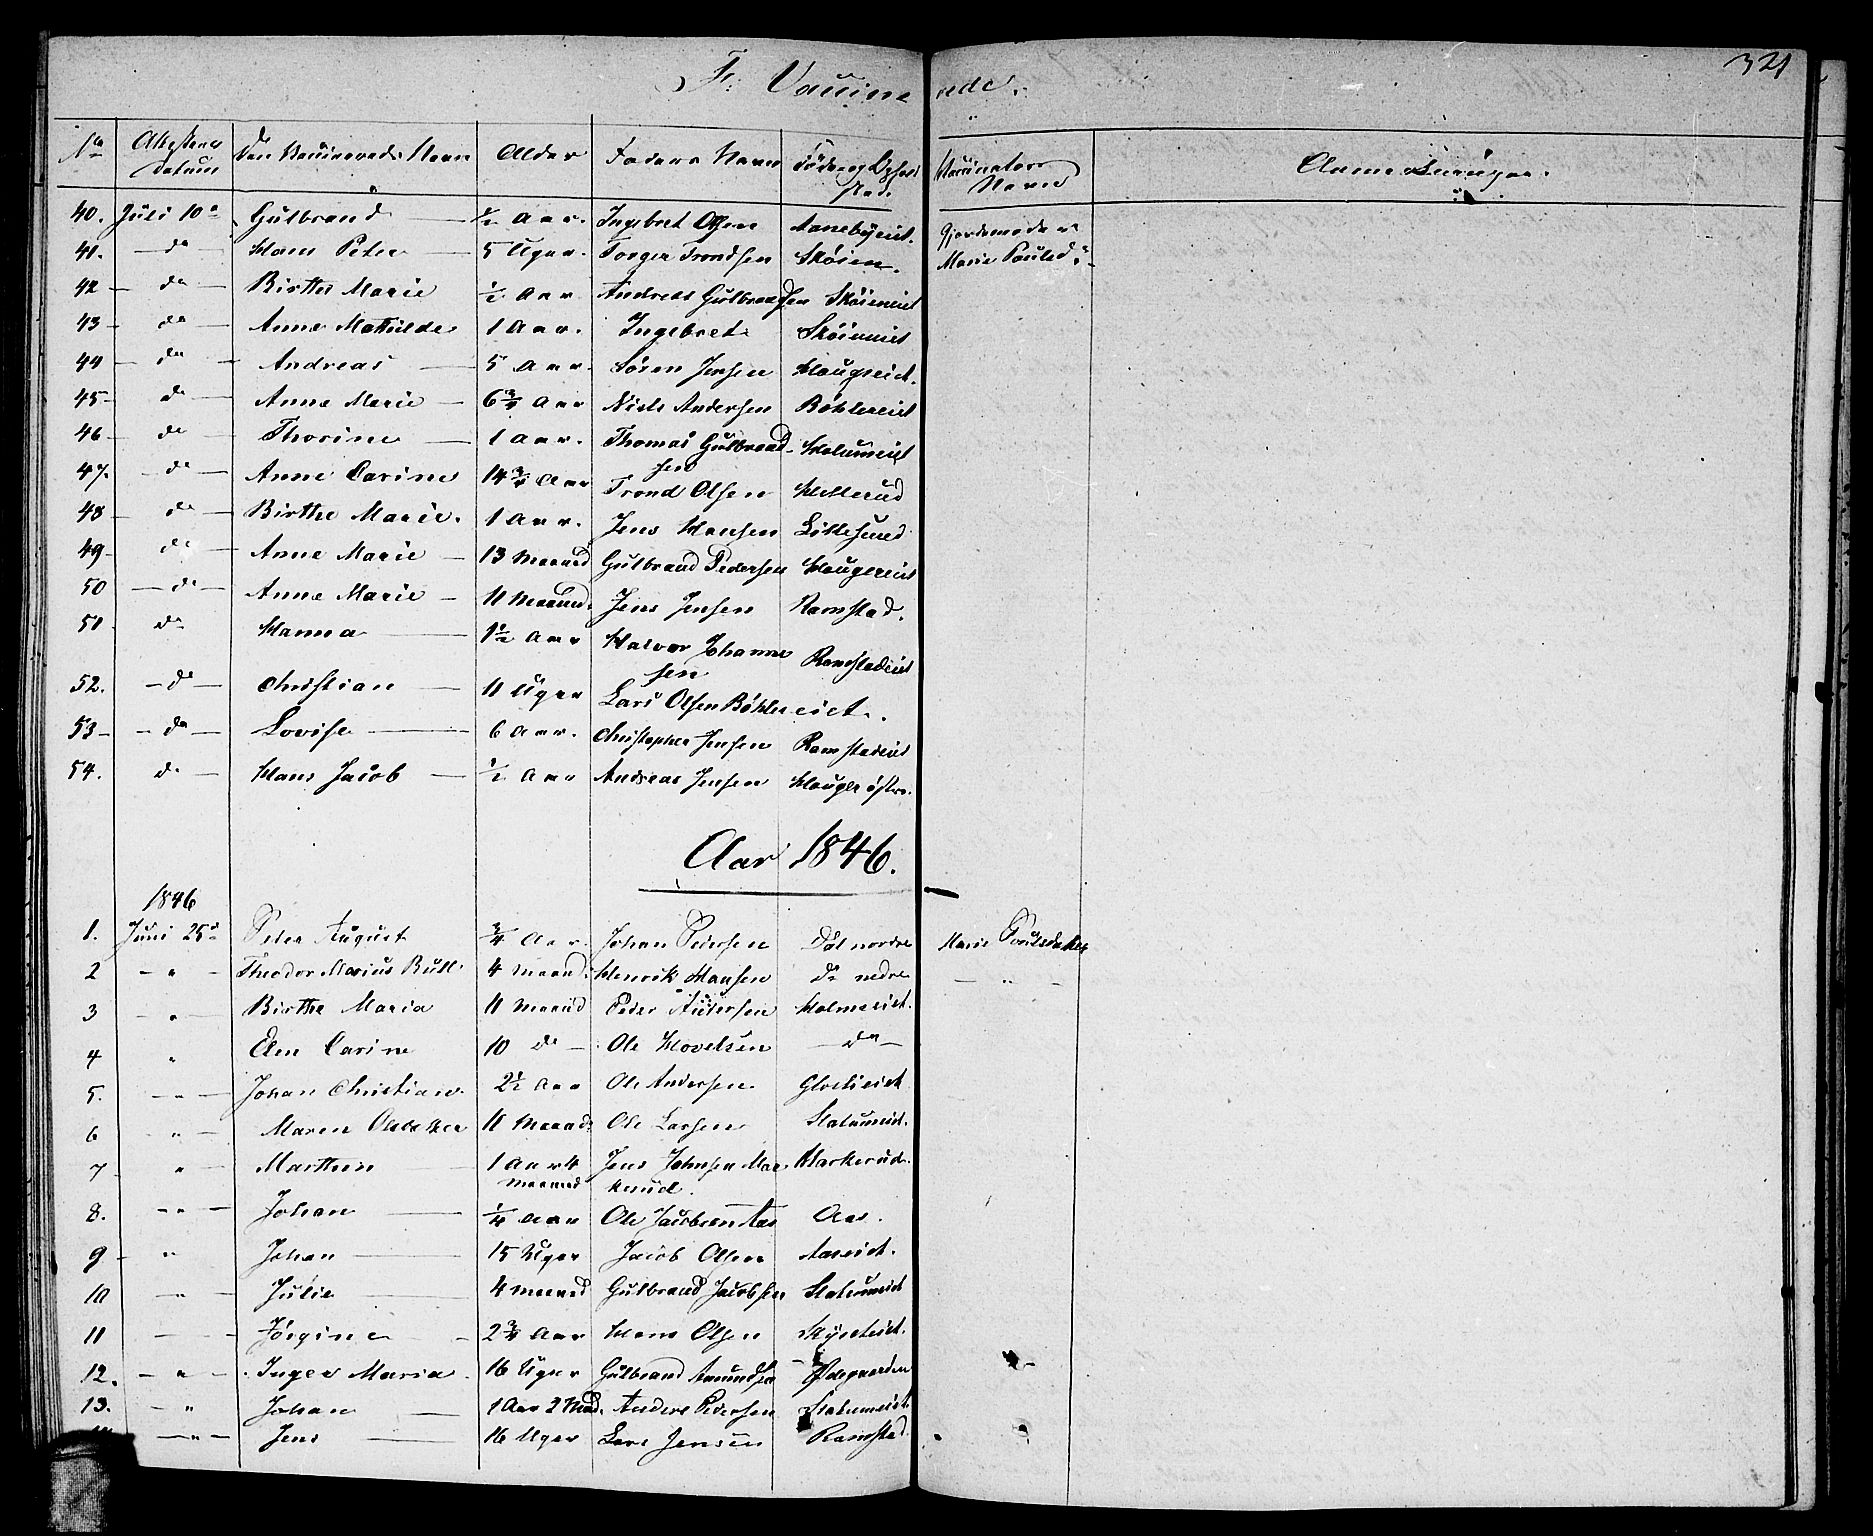 321
F. Vaccinerede.
No Attestens Datum Den Vaccineredes Navn Alder Faders Navn Føde og Opholdsted. Vaccinators Navn Anmærkninger.
40. Juli 10de Gulbrand — ½ Aar. Ingebret Olsen Aanebyeiet. Gjordemoder
41. — do Hans Peter — 5 Uger. Torger Trondsen Skøien. Marie Poulsd:
42 — do — Birthe Marie ½ Aar Andreas Gulbrandsen Skøieneiet
43 — do Anne Mathilde 1 Aar. Ingebret Skøieneiet
44 — do — Andreas — 5 Aar. Søren Jensen Haugseiet.
45 — do — Anne Marie — 6¾ Aar Niels Andersen Bøhlereiet
46 — do Thorine — 1 Aar. Thomas Gulbrand-
sen Holumeiet
47. — do — Anne Carine 14¾ Aar Trond Olsen Hellerud
48 — do — Birthe Marie. 1 Aar. Jens Hansen
49 — do — Anne Marie — 13 Maaned Gulbrand Pedersen Haugereiet
50 — do — Anne Marie — 11 Maaned. Jens Jensen Ramstad.
51. do Hanna — 1½ Aar Halvor Johanne
sen Ramstadeiet
52. — do — Christian — 11 Uger Lars Olsen Bøhlereiet.
53 — do — Lovise — 6 Aar. Christopher Jensen Ramstadeiet
54. do — Hans Jacob — ½ Aar Andreas Jensen Hauger østre.
Aar 1846.
1846
1. Juni 25de Peter August ¾ Aar. Johan Pedersen Døl nordre Marie Poulsdatter
2 — " — Theodor Marius Bull 4 Maaned. Henrik Hansen do nedre — " —
3 — " — Birthe Maria 11 Maaned Peder Andersen Holmseiet.
4 " Elen Carine 10 do — Ole Hovelsen — do —
5. — " — Johan Christian. 2½ Aar Ole Andersen
6 " — Maren 11 Maaned. Ole Larsen Stalumeiet.
7 " — Marthin 1 Aar 4
Maaned Jens Johnsen Mar
kerud. Markerud.
8. — " — Johan — ¼ Aar Ole Jacobsen Aas Aas.
9 — " Johan — 15 Uger Jacob Olsen Aaseiet.
10 — " — Julie — 4 Maaned Gulbrand Jacobsen Stalumeiet
11 — — Jørgine — 2¾ Aar Hans Olsen
12. — " — Inger Maria. 16 Uger Gulbrand Amundsen Ødegaarden
13. — " Johan — 1 Aar 3 Mnd. Anders Pedersen Stalumeiet.
— " — Jens — 16 Uger Lars Jensen Ramstad